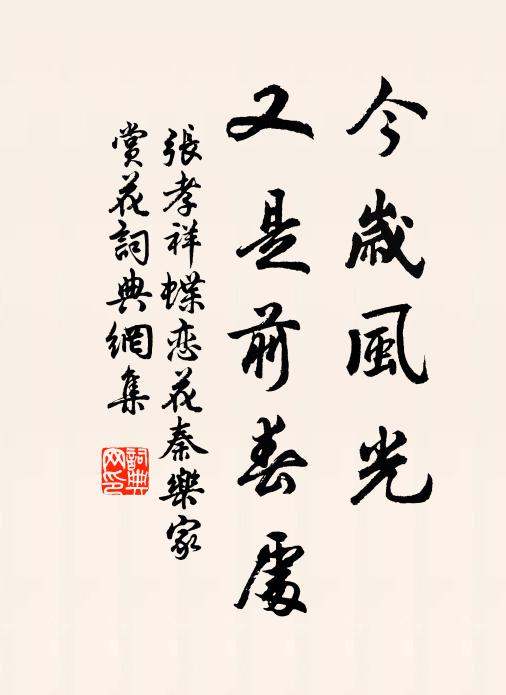 今歲風光
又是前春處
張孝祥蝶恋花秦樂家
賞花詞典網集
詞典网印